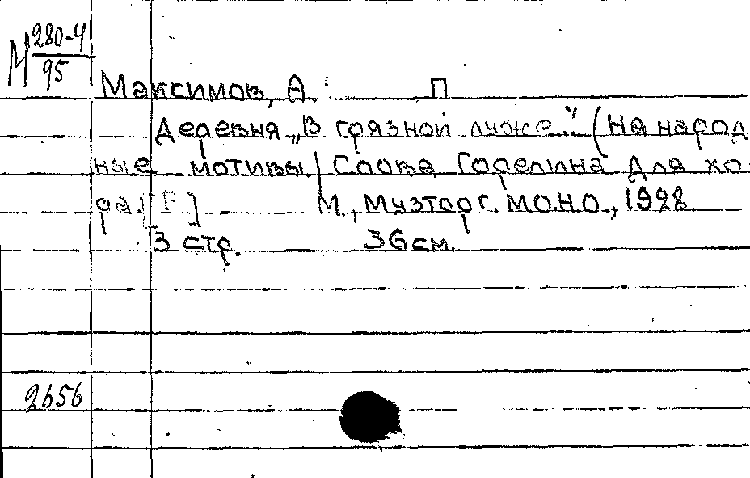 М 280-4
95
Максимов, А. П
Деревня „В грязной луже." (На народ
ные мотивы) Слова Горелина Для хо
ра. [Г]   М., Музторг. МОНО., 1928
3 стр.   36 см.
2656